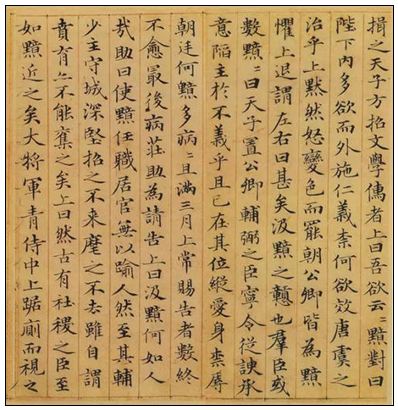 揖之天子方招文學儒者上曰吾欲云〻黯對曰
陛下内多欲而外施仁義柰何欲效唐虞之
治乎上黙然怒變色而罷朝公卿皆為黯
懼上退謂左右曰甚矣汲黯之戇也羣臣或
數黯〻曰天子置公卿輔弼之臣寧令從諛承
意陷主於不義乎且已在其位縱愛身柰辱
朝廷何黯多病〻且滿三月上常賜告者數終
不愈最後病莊助為請告上曰汲黯何如人
哉助曰使黯任職居官無以踰人然至其輔
少主守城深堅招之不来麾之不去雖自謂
賁育亦不能奪之矣上曰然古有社稷之臣至
如黯近之矣大將軍青侍中上踞廁而視之